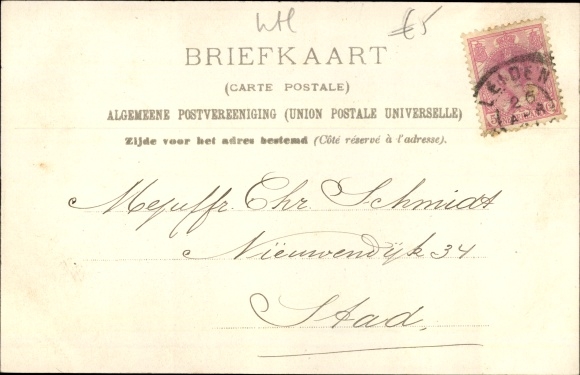 WH £5
BRIEFKAART
(CARTE POSTALE)
ALGEMEENE POSTVEREENIGING (UNION POSTALE UNIVERSELLE)
Zijde voor het adres bestemd (Côté réservé à l'adresse).
LEIDEN
26
APR
Mejuffr. Chr. Schmidt
Nieuwendijk 34
Stad.